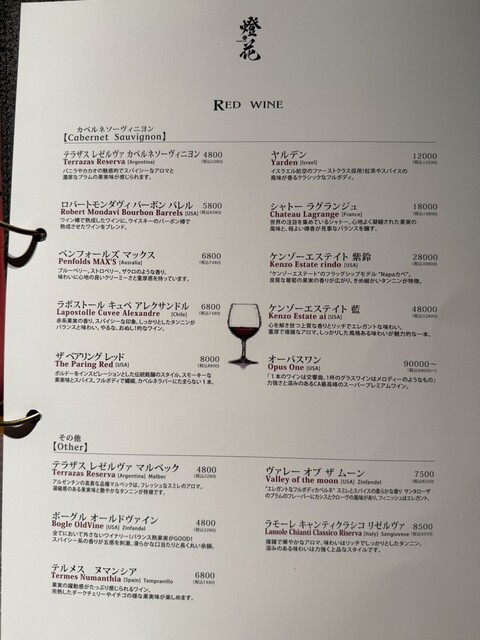 燈花
RED WINE
カベルネソーヴィニヨン
【Cabernet Sauvignon】
テラザス レゼルヴァ カベルネソーヴィニヨン 4800
Terrazas Reserva [Argentina] (税込5280)
バニラやカカオの魅惑的でスパイシーなアロマと
濃厚なプラムの果実味が感じられます。
ロバートモンダヴィ バーボン バレル 5800
Robert Mondavi Bourbon Barrels [USA] (税込6380)
ワイン樽で熟成したワインに、ウイスキーのバーボン樽で
熟成させたワインをブレンド。
ペンフォールズ マックス 6800
Penfolds MAX'S [Australia] (税込7480)
ブルーベリー、ストロベリー、ザクロのような香り、
味わいに心地の良いクリーミーさと重厚感を持っています。
ラポストール キュベ アレクサンドル 6800
Lapostolle Cuvee Alexandre [Chile] (税込7480)
赤系果実の香り、スパイシーな印象、しっかりとしたタンニンが
バランスと味わい、やるな、おぬし!的なワイン。
ザ ペアリング レッド 8000
The Paring Red [USA] (税込8800)
ボルドーをインスピレーションとした伝統銘醸のスタイル。スモーキーな
果実味とスパイス、フルボディで繊細、カベルネラバーにたまらない1本。
ヤルデン 12000
Yarden [Israel] (税込13200)
イスラエル航空のファーストクラス採用!紅茶やスパイスの
風味が香るクラシックなフルボディ。
シャトー ラグランジュ 18000
Chateau Lagrange [France] (税込19800)
世界の注目を集めているシャトー。心地よく凝縮された果実の
風味と、程よい樽香が見事なバランスを醸す。
ケンゾーエステイト 紫鈴 28000
Kenzo Estate rindo [USA] (税込30800)
"ケンゾーエステイト"のフラッグシップモデル "Napaカベ"。
良質な葡萄の果実の香りが広がり、きめ細かいタンニンが特徴。
ケンゾーエステイト 藍 48000
Kenzo Estate ai [USA] (税込52800)
心を解き放つ上質な香りとリッチでエレガントな味わい。
重厚で複雑なアロマ、しっかりした風格ある味わいが魅力的な一本。
オーパスワン 90000〜
Opus One [USA] (税込99000〜)
「1本のワインは交響曲、1杯のグラスワインはメロディーのようなもの」
力強さと深みのあるCA最高峰のスーパープレミアムワイン。
その他
【Other】
テラザス レゼルヴァ マルベック 4800
Terrazas Reserva [Argentina] Malbec (税込5280)
アルゼンチンの高貴な品種マルベックは、フレッシュなスミレのアロマ、
凝縮感のある果実味と艶やかなタンニンが特徴です。
ボーグル オールドヴァイン 4800
Bogle OldVine [USA] Zinfandel (税込5280)
全てにおいて外さないワイナリー!バランス熟果実がGOOD!
スパイシー系の香りが五感を刺激。滑らかな口当たりと長く丸い余韻。
テルメス ヌマンシア 6800
Termes Numanthia [Spain] Tempranillo (税込7480)
果実の躍動感がたっぷり感じられるワイン。
完熟したダークチェリーやイチゴの様な果実味が楽しめます。
ヴァレー オブ ザ ムーン 7500
Valley of the moon [USA] Zinfandel (税込8250)
"エレガントなフルボディかベルネ" スミレとスパイスの柔らかな香り サンタローザ
のプラムのフレーバーにカシスとクローヴの風味があり、フィニッシュはエレガント。
ラモーレ キャンティクラシコ リゼルヴァ 8500
Lamole Chianti Classico Riserva [Italy] Sangiovese (税込9350)
複雑で華やかなアロマ、味わいはリッチでしっかりとしたタンニン。
深みのある味わいは力強く上品なスタイルです。